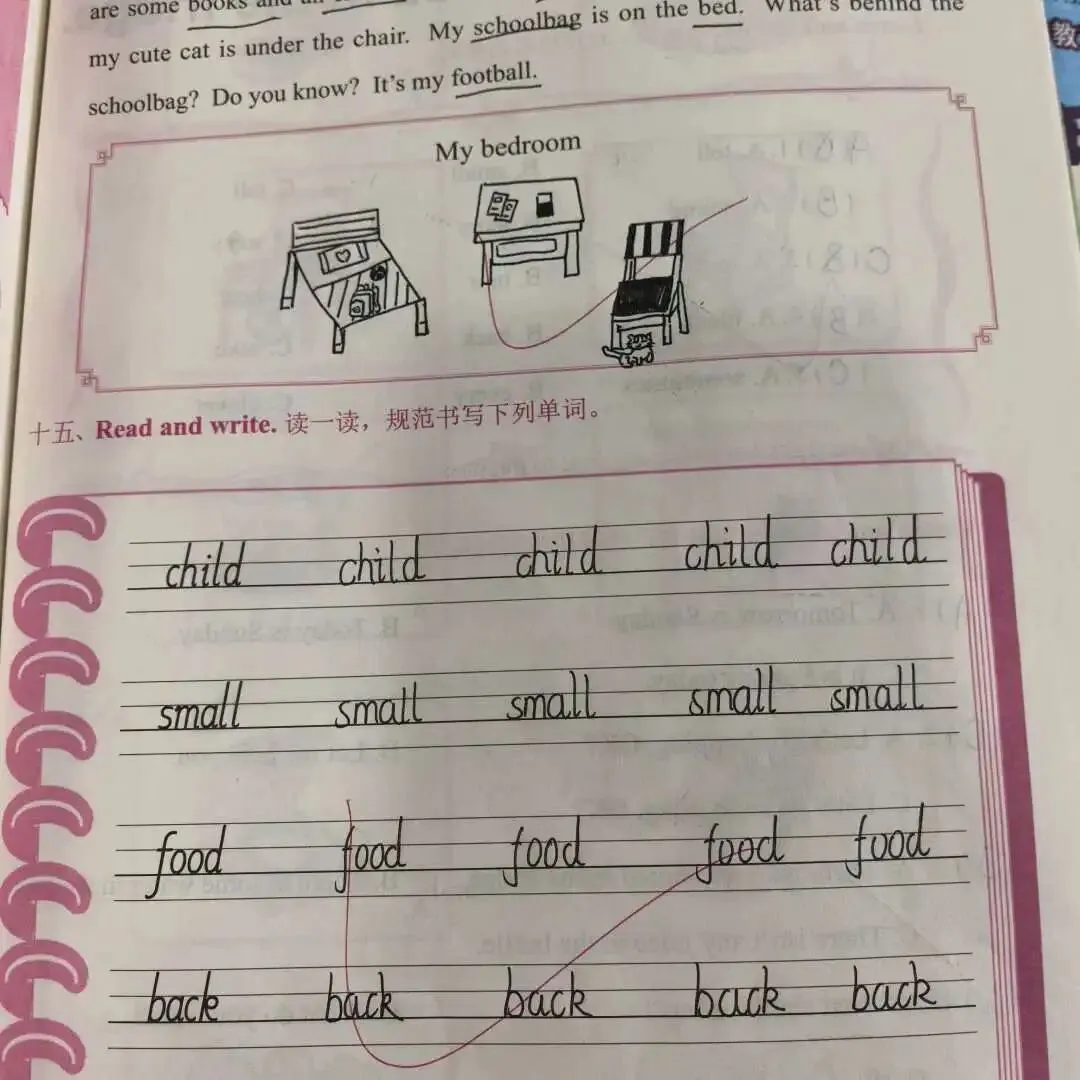 are some books and
my cute cat is under the chair. My schoolbag is on the bed. What's behind the
schoolbag? Do you know? It's my football.
My bedroom
十五、Read and write. 读一读，规范书写下列单词。
child child child child child
small small small small small
food food food food food
back back back back back
教